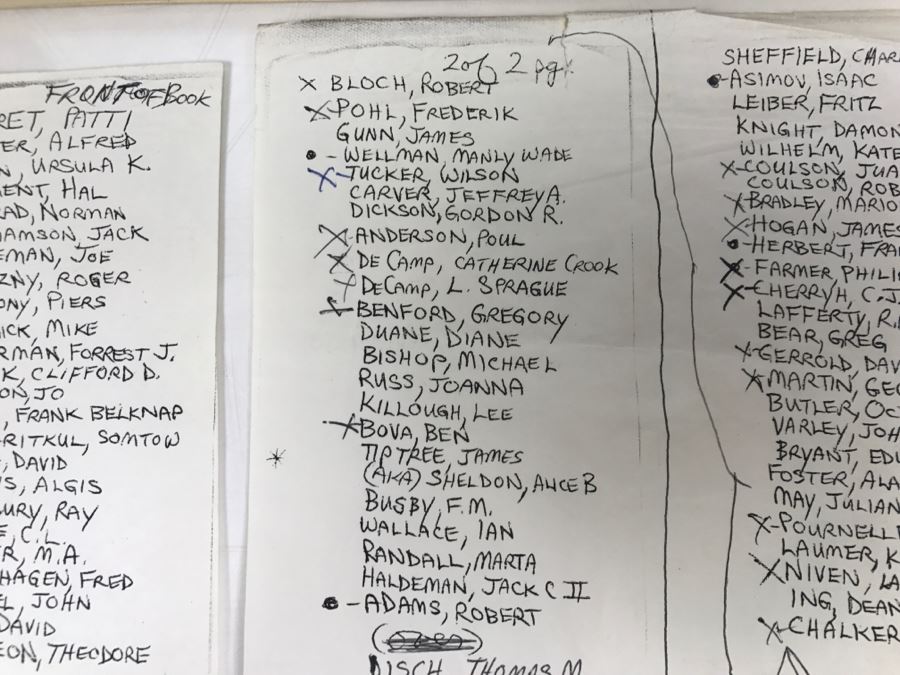 FRONT OF BOOK
RET, PATTI
ER, ALFRED
N, URSULA K.
MENT, HAL
AD, NORMAN
IAMSON, JACK
EMAN, JOE
ZNY, ROGER
ONY, PIERS
ICK, MIKE
RMAN, FORREST J.
K, CLIFFORD D.
ON, JO
, FRANK BELKNAP
RITKUL, SOMTOW
, DAVID
IS, ALGIS
URY, RAY
E, C.L.
R, M.A.
HAGEN, FRED
EL, JOHN
DAVID
EON, THEODORE
2 of 2 pg
X BLOCH, ROBERT
X-POHL, FREDERIK
GUNN, JAMES
• - WELLMAN, MANLY WADE
X-TUCKER, WILSON
CARVER, JEFFREY A.
DICKSON, GORDON R.
X-ANDERSON, POUL
X DE CAMP, CATHERINE CROOK
X DECAMP, L. SPRAGUE
X-BENFORD, GREGORY
DUANE, DIANE
BISHOP, MICHAEL
RUSS, JOANNA
KILLOUGH, LEE
X-BOVA, BEN
* TIPTREE, JAMES
(AKA) SHELDON, ALICE B
BUSBY, F.M.
WALLACE, IAN
RANDALL, MARTA
HALDEMAN, JACK C II
• - ADAMS, ROBERT
DISCH, THOMAS M
SHEFFIELD, CHAR
•-ASIMOV, ISAAC
LEIBER, FRITZ
KNIGHT, DAMON
WILHELM, KATE
X-COULSON, JUA
COULSON, ROB
X-BRADLEY, MARIO
X-HOGAN, JAMES
•-HERBERT, FRA
X-FARMER, PHILI
X-CHERRYH, C.J.
LAFFERTY, R.
BEAR, GREG
X-GERROLD, DAV
X-MARTIN, GEO
BUTLER, OC
VARLEY, JOH
BRYANT, EDU
FOSTER, ALA
MAY, JULIAN
X-POURNELLE
LAUMER, K
X NIVEN, LA
ING, DEAN
X-CHALKER